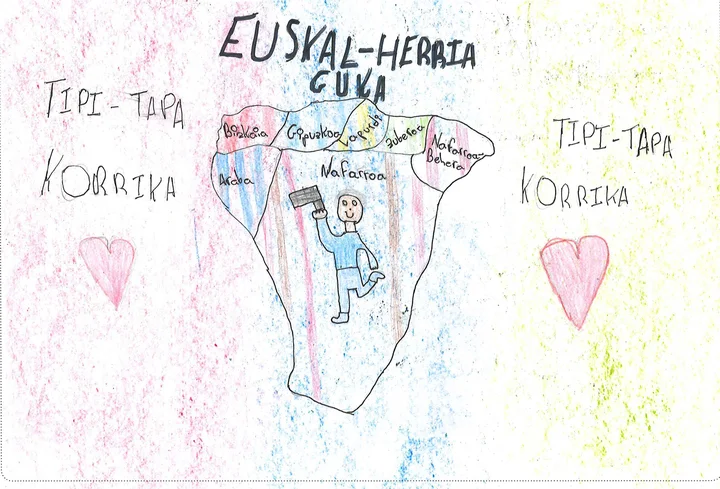 EUSKAL-HERRIA
GUKA
TIPI-TAPA
KORRIKA
Bizkaia
Gipuzkoa
Lapurdi
Zuberoa
Nafarroa
Behera
Araba
Nafarroa
TIPI-TAPA
KORRIKA